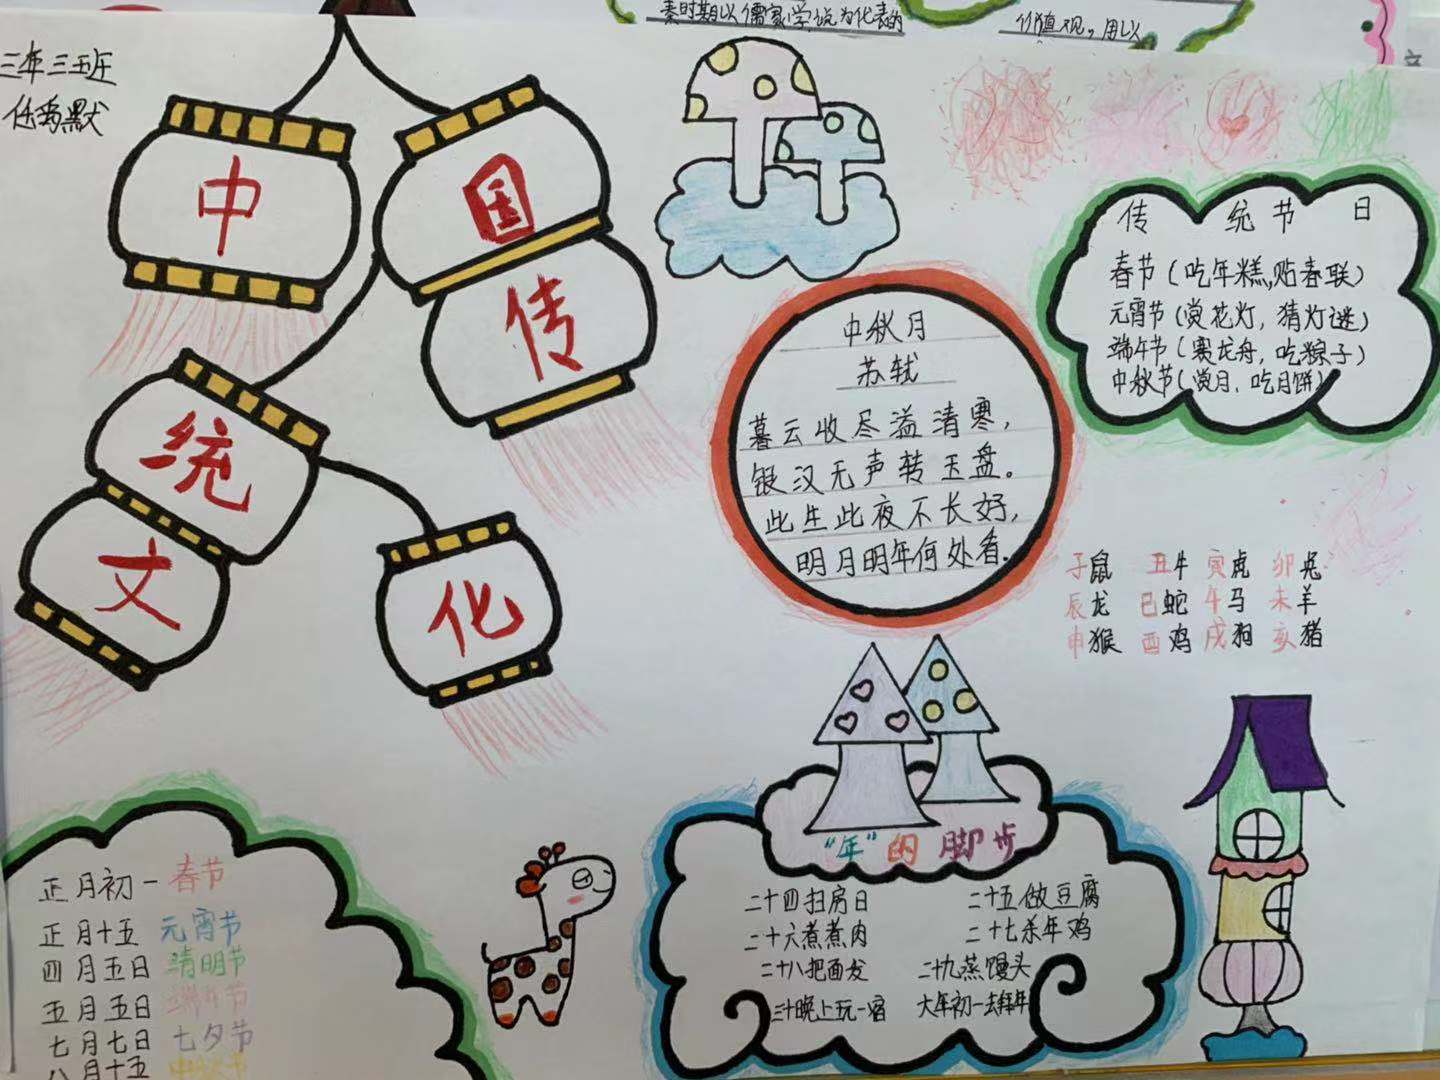 秦时期以儒家学说为代表的
价值观，用以
三年三班
中国传统文化
传统节日
春节（吃年糕，贴春联）
元宵节（赏花灯，猜灯谜）
端午节（赛龙舟，吃粽子）
中秋节（赏月，吃月饼）
中秋月
苏轼
暮云收尽溢清寒，
银汉无声转玉盘。
此生此夜不长好，
明月明年何处看。
子鼠 丑牛 寅虎 卯兔
辰龙 巳蛇 午马 未羊
申猴 酉鸡 戌狗 亥猪
正月初一 春节
正月十五 元宵节
四月五日 清明节
五月五日 端午节
七月七日 七夕节
八月十五 中秋节
“年”的脚步
二十四扫房日 二十五做豆腐
二十六煮煮肉 二十七杀年鸡
二十八把面发 二十九蒸馒头
三十晚上玩一宿 大年初一去拜年